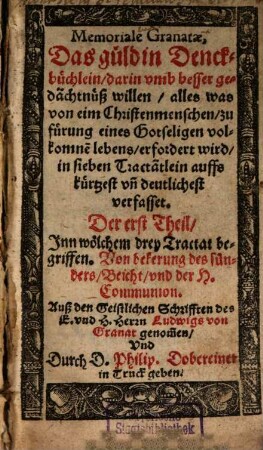 Memoriale Granatæ,
Das güldin Denck-
büchlein/ darin vmb besser ge-
dächtnüß willen / alles was
von eim Christenmenschen/ zu
fürung eines Gotseligen vol-
kom̃nẽ lebens/ erfordert wird/
in sieben Tractätlein auffs
kürtzest vñ deutlichest
verfasset.
Der erst Theil/
Jnn wölchem drey Tractat be-
griffen. Von bekerung des sün-
ders/ Beicht/ vnd der H.
Communion.
Auß den Geistlichen Schrifften des
E. vnd H. Herrn Ludwigs von
Granat genom̃en/
Vnd
Durch D. Philip. Dobereiner
in Truck geben.
Staatsbibliothek